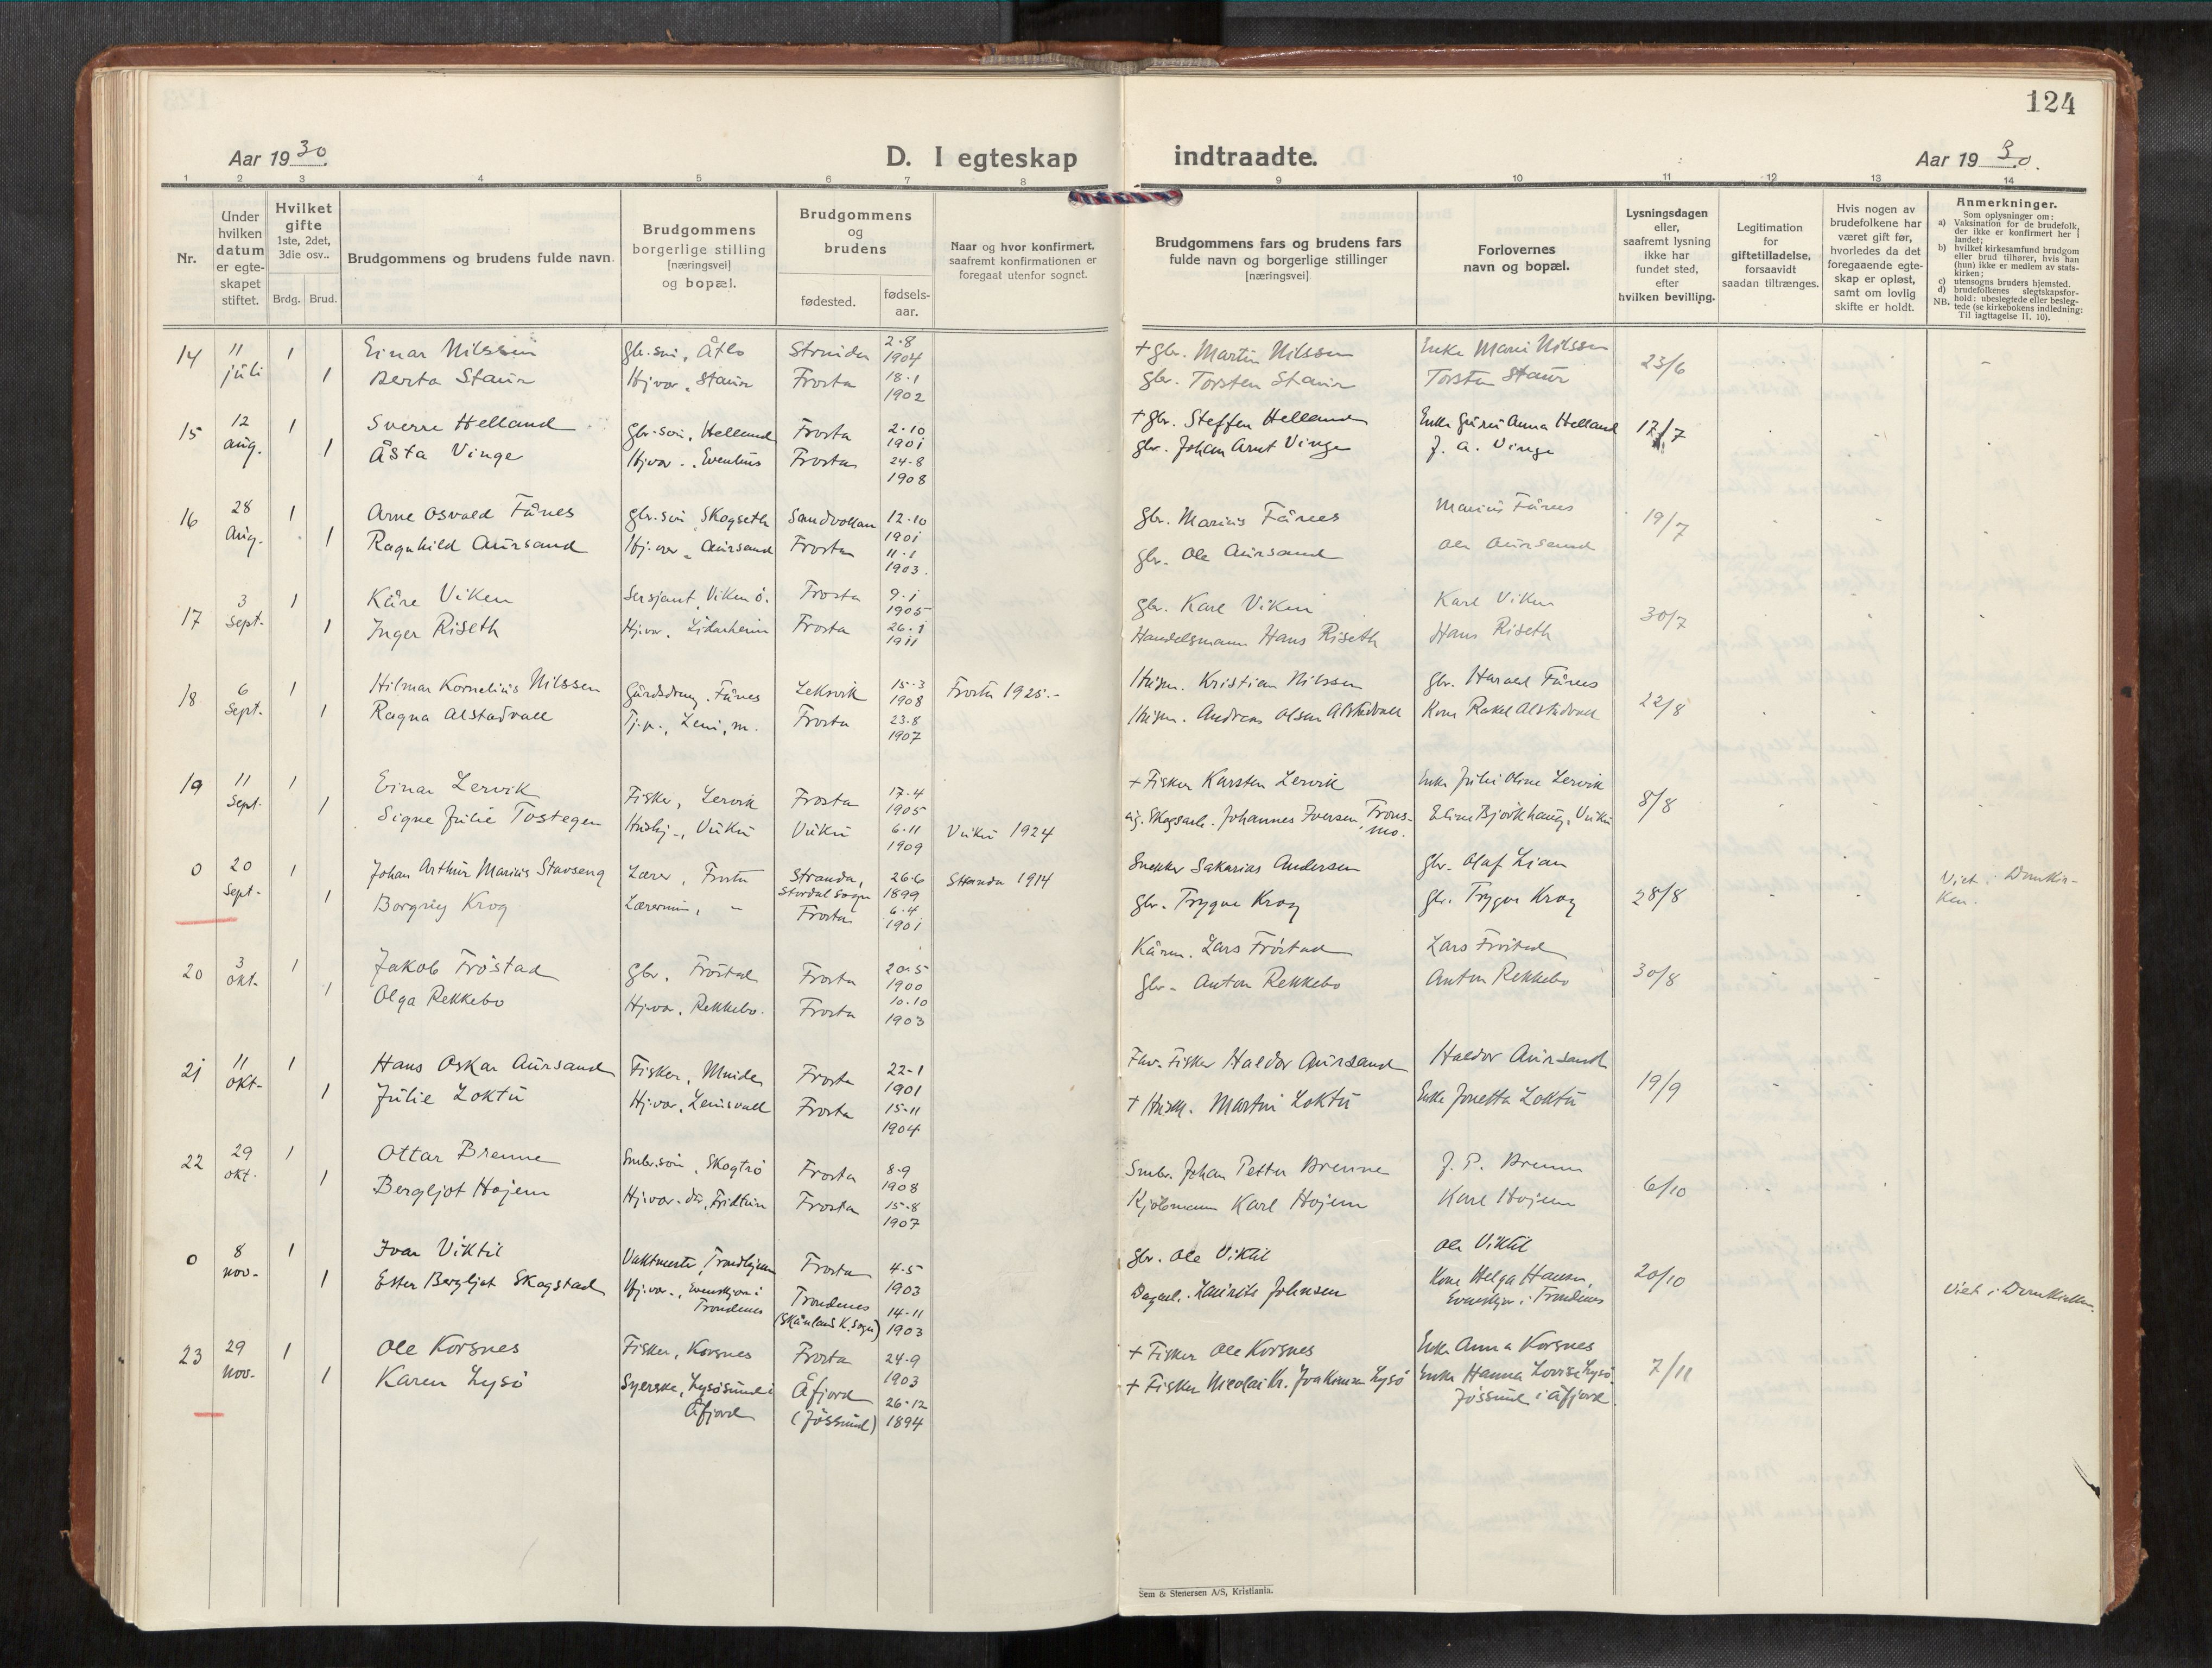 124
Aar 1930.
D. I egteskap indtraadte.
Aar 1930.
1 2 3 4 5 6 7 8 9 10 11 12 13 14
Nr.
Under hvilken datum er egte-skapet stiftet.
Hvilket gifte 1ste, 2det, 3die osv..
Brdg. Brud.
Brudgommens og brudens fulde navn.
Brudgommens borgerlige stilling [næringsvei] og bopæl.
Brudgommens og brudens
fødested.
fødsels-aar.
Naar og hvor konfirmert, saafremt konfirmationen er foregaat utenfor sognet.
Brudgommens fars og brudens fars fulde navn og borgerlige stillinger [næringsvei].
Forlovernes navn og bopæl.
Lysningsdagen eller, saafremt lysning ikke har fundet sted, efter hvilken bevilling.
Legitimation for giftetilladelse, forsaavidt saadan tiltrænges.
Hvis nogen av brudefolkene har været gift før, hvorledes da det foregaaende egte-skap er opløst, samt om lovlig skifte er holdt.
Anmerkninger.
Som oplysninger om:
a) Vaksination for de brudefolk, der ikke er konfirmert her i landet;
b) hvilket kirkesamfund brudgom eller brud tilhører, hvis han (hun) ikke er medlem av stats-kirken;
c) utensogns bruders hjemsted.
d) brudefolkenes slegtskapsfor-hold: ubeslegtede eller besleg-tede (se kirkebokens indledning:
NB. Til iagttagelse II. 10).
14 11 juli 1 Einar Nilssen Gbr.sön, Åtlo Strinda 2-8 1904 + Gbr. Martin Nilssen Enke Marie Nilssen 23/6
1 Berta Staur Hj.vær. Staur Frosta 18-1 1902 Gbr. Torsten Staur Torsten Staur
15 12 aug. 1 Sverre Helland Gbr.sön, Helland Frosta 2-10 1901 + Gbr. Steffen Helland Enke Guru Anna Helland 17/7
1 Åsta Vinge Hj.vær., Evenhus Frosta 24-8 1908 Gbr. Johan Arnt Vinge J. A. Vinge
16 28 Aug. 1 Arne Osvald Fånes Gbr.sön Skogseth Sandvollan 12-10 1901 Gbr. Marius Fånes Marius Fånes 19/7
1 Ragnhild Aursand Hj.vær Aursand Frosta 11-1 1903. Gbr. Ole Aursand Ole Aursand
17 3 Sept. 1 Kåre Viken Sersjant, Viken ö. Frosta 9-1 1905 Gbr. Karl Viken Karl Viken 30/7
1 Inger Riseth Hj.vær. Lidarheim Frosta 26-1 1911 Handelsmann Hans Riseth Hans Riseth
18 6 Sept. 1 Hilmar Kornelius Nilssen Gårdsdreng, Fånes Leksvik 15-3 1908 Frosta 1925.- Husm. Kristian Nilssen Gbr. Harald Fånes 22/8
1 Ragna Alstadvall Tj.p., Leni, m. Frosta 23-8 1907 Husm. Andreas Olsen Alstadvall Kone Rakel Alstadvall
19 11 Sept. 1 Einar Lervik Fisker, Lervik Frosta 17-4 1905 + Fisker Karsten Lervik Enke Juli Oline Lervik 8/8
1 Signe Julie Tostegen Hushj., Vuku Vuku 6-11 1909 Vuku 1924 Johannes Iversen Eline Bjørkhaug, Vuku
0 20 Sept. 1 Johan Arthur Marius Stavseng Lærer, Frosta Stranda, Stordal sogn 26-6 1899 Stranda 1914 Snekker Sakarias Andersen Gbr. Olaf Lian 28/8 Viet i Domkir-ken.
1 Borgny Krog Lærerinne, - Frosta 6-4 1901 Gbr. Trygve Krog Gbr. Trygve Krog
20 3 Okt. 1 Jakob Fröstad Gbr. Fröstad Frosta 20-5 1900 Kårm. Lars Fröstad Lars Fröstad 30/8
1 Olga Rekkebo Hj.vær. Rekkebo. Frosta 10-10 1903 Gbr. Anton Rekkebo Anton Rekkebo
21 11 Okt. 1 Hans Oskar Aursand Fisker, Frosta 22-1 1901 Fhv. Fisker Haldor Aursand Haldor Aursand 19/9
1 Julie Loktu Hj.vær, Leinsvald Frosta 15-11 1904 + Husm. Martin Loktu Enke Jonetta Loktu
22 29 Okt. 1 Ottar Brenne Smbr.sön, Skogtrö Frosta 8-9 1908 Smbr. Johan Petter Brenne J. P. Brenne 6/10
1 Bergljot Hojem Hj.vær. Fridheim Frosta 15-8 1907 Kjöbmann Karl Hojem Karl Hojem
0 8 Nov. 1 Ivar Viktil Vaktmester, Trondhjem Frosta 4-5 1903 Gbr. Ole Viktil Ole Viktil 20/10 Viet i Domkirken.
1 Ester Bergljot Skogstad Hj.vær., Evenskjær i Trondenes Trondenes (Skånland K. sogn) 14-11 1903 Dagarb. Lauritz Johnsen Kone Helga Hansen, Evenskjær i Trondenes
23 29 Nov. 1 Ole Korsnes Fisker, Korsnes Frosta 24-9 1903 + Fisker Ole Korsnes Enke Anna Korsnes 7/11
1 Karen Lysö Syerske, Lysösund i Åfjord Åfjord (Jössund) 26-12 1894 + Fisker Nicolai Kr. Joakimsen Lysö Enke Hanna Lovise Lysö, Jössund i Åfjord.
Sem & Stenersen A/S, Kristiania.